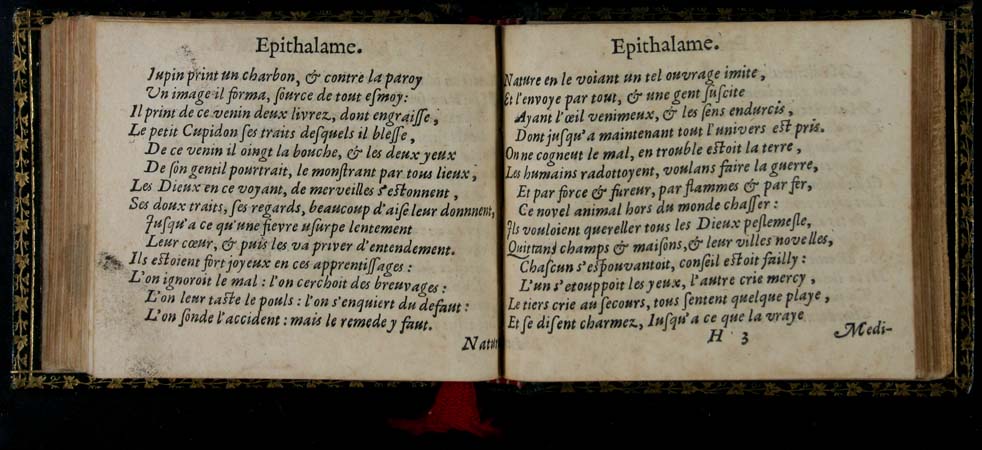 Epithalame.
Iupin print un charbon, & contre la paroy
Un image il forma, ſource de tout eſmoy:
Il print de ce venin deux livrez, dont engraiſſe,
Le petit Cupidon ſes traits deſquels il bleſſe,
De ce venin il oingt la bouche, & les deux yeux
De ſon gentil pourtrait, le monſtrant par tous lieux,
Les Dieux en ce voyant, de merveilles s'eſtonnent,
Ses doux traits, ſes regards, beaucoup d'aiſe leur donnnent,
Juſqu'a ce qu'une fievre uſurpe lentement
Leur cœur, & puis les va priver d'entendement.
Ils eſtoient fort joyeux en ces apprentiſſages:
L'on ignoroit le mal: l'on cerchoit des breuvages:
L'on leur taſte le pouls: l'on s'enquiert du defaut:
L'on ſonde l'accident: mais le remede y faut.
Natur
Epithalame.
Nature en le voiant un tel ouvrage imite,
Et l'envoye par tout, & une gent ſuſcite
Ayant l'œil venimeux, & les ſens endurcis,
Dont juſqu'a maintenant tout l'univers eſt pris.
On ne cogneut le mal, en trouble eſtoit la terre,
Les humains radottoyent, voulans faire la guerre,
Et par force & fureur, par flammes & par fer,
Ce novel animal hors du monde chaſſer:
Ils vouloient quereller tous les Dieux peſlemeſle,
Quittans champs & maiſons, & leur villes novelles,
Chaſcun s'eſpouvantoit, conſeil eſtoit failly:
L'un s'etouppoit les yeux, l'autre crie mercy,
Le tiers crie au ſecours, tous ſentent quelque playe,
Et ſe diſent charmez, Iuſqu'a ce que la vraye
H 3
Medi-